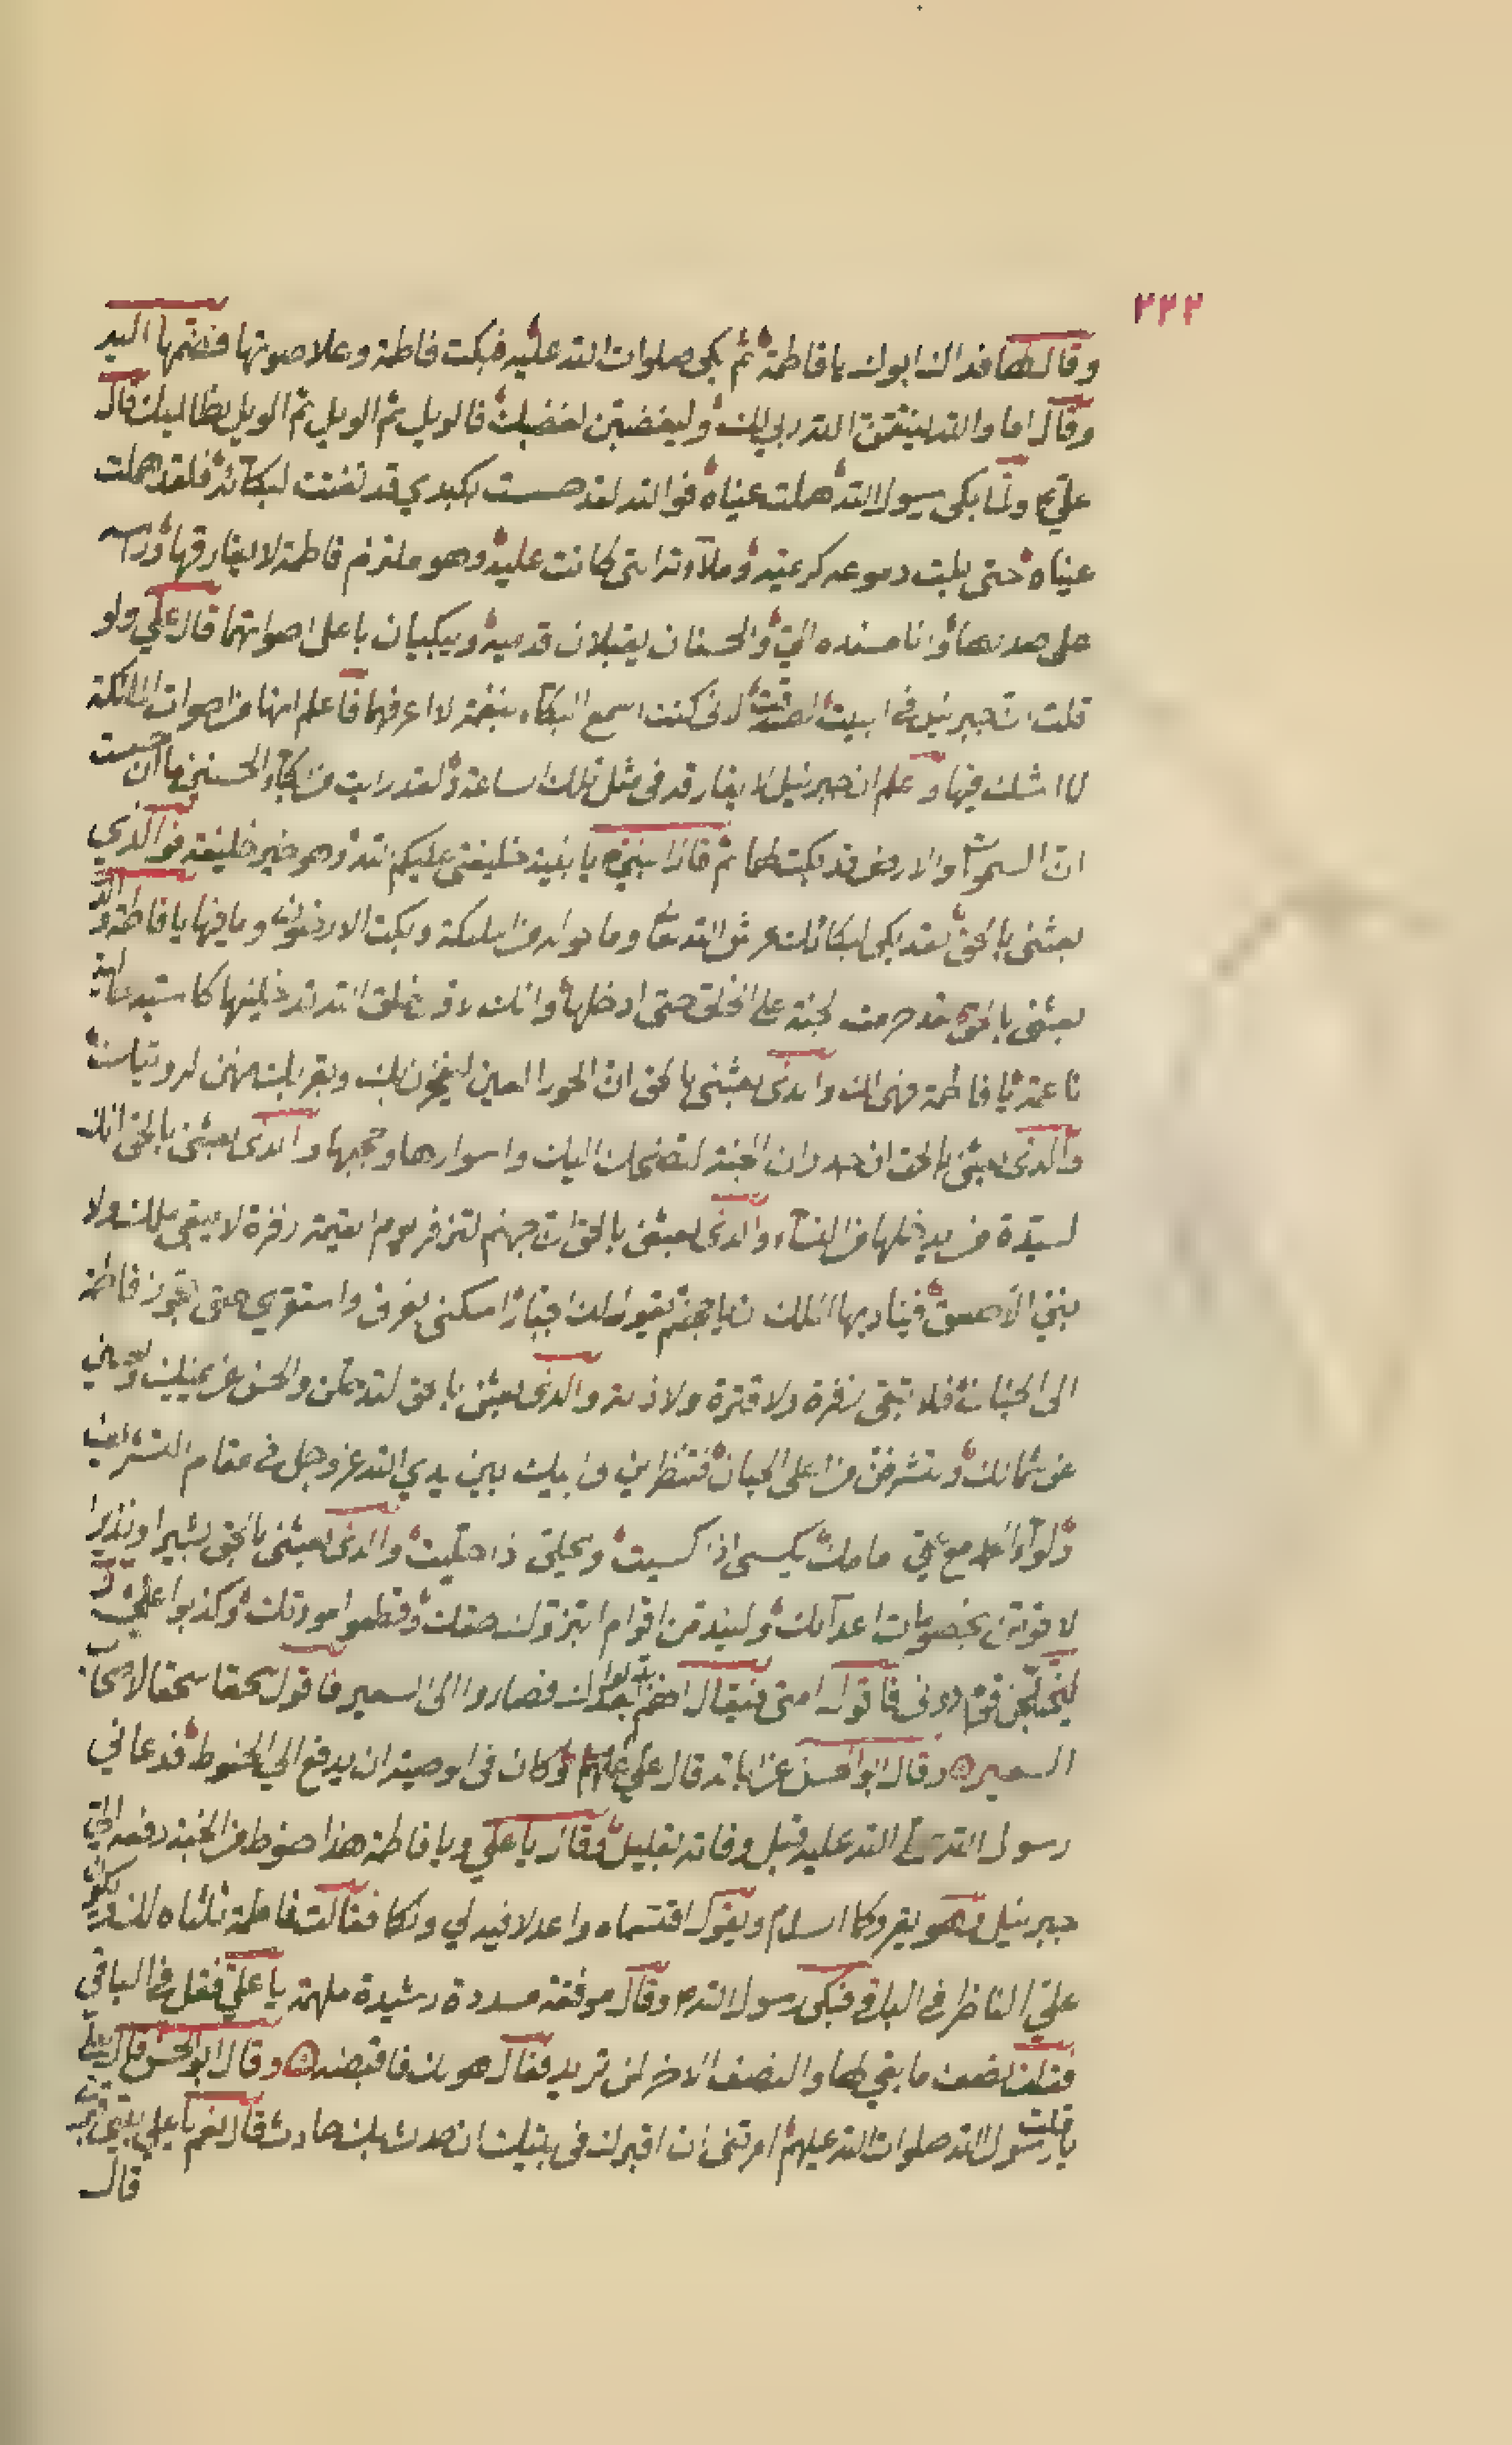 ٢٢٢
وقال لها فداك ابوك يا فاطمة ثم بكى صلوات الله عليه فبكت فاطمة وعلا صوتها فضمها اليه
وقال اما والله لينتقمن الله ربي لك وليغضبن لغضبك فالويل ثم الويل ثم الويل لظالميك قال
علي ولما بكى رسول الله هملت عيناه فوالله لقد حسست بكبدي قد تفتتت لبكائه فلقد هملت
عيناه حتى بلت دموعه كريمته وملاءته التي كانت عليه وهو ملتزم فاطمة لا يفارقها وراسه
على صدرها وانا مسنده الي والحسنان يقبلان قدميه ويبكيان باعلى اصواتهما قال علي ولو
قلت ان جبرئيل في البيت لصدقت لانى كنت اسمع البكاء بنغمة لا اعرفها فاعلم انها من اصوات الملائكة
لا اشك فيها واعلم ان جبرئيل لا يفارقه في مثل تلك الساعة ولقد رايت من بكاء الحسنين ما ان حسبت
ان السموات والارض قد بكت لها ثم قال يا بنية خليفتي عليكم الله وهو خير خليفة فوالذي
بعثنى بالحق لقد بكى لبكائك عرش الله وما حوله من الملئكة وبكت الارضون وما فيها يا فاطمة والذ
بعثنى بالحق قد حرمت الجنة على الخلق حتى ادخلها وانك لاول خلق الله تدخلينها كاسية حالية
ناعمة يا فاطمة فهنيا لك والذى بعثنى بالحق ان الحور العين ليفخرن بك
والذى بعثنى بالحق ان الجنة لتضحك اليك واسوارها وحجبها والذى بعثنى بالحق انك
لسيدة من يدخلها من النساء والذى بعثنى بالحق ان جهنم لتزفر يوم القيمة زفرة لا يبقى ملك ولا
نبي الا صعق فيناديها الملك ان يا جهنم يقول لك الجبار اسكنى بعزى واستقرى حتى تجوز فاطمة
الى الجنان فلا تبقى زفرة ولا قترة ولا ذلة والذى بعثنى بالحق لتدخلن والحسن عن يمينك والحسين
عن شمالك وتشرفن من اعلى الجنان فتنظرين من بين يدي الله عز وجل فى مقام الشريف
ولواء الحمد مع علي امامك يكسى اذا كسيت ويحلى اذا حليت والذى بعثنى بالحق بشيرا ونذيرا
لاقومن بخصومات اعدائك وليندمن اقوام ابتزوك حقك وقطعوا مودتك وكذبوا علي
ليختلجن دونى فاقول امتى فيقال انهم بدلوا بعدك فصاروا الى السعير فاقول سحقا سحقا لاصحاب
السعير وقال ابو الحسن عن ابائه قال علي وكان فى الوصية ان يدفع الي الحنوط فدعانى
رسول الله صلى الله عليه قبل وفاته بقليل وقال يا علي ويا فاطمة هذا حنوط من الجنة دفعه الي
جبرئيل وهو يقروكما السلام ويقول اقتسماه واعدلا فيه لي ولكما فقالت فاطمة ثلثاه لك وليكن
علي الناظر في الباقى فبكى رسول الله وقال موفقة مسددة رشيدة ملهمة يا علي فقل في الباقى
فقلت نصف ما بقى لها والنصف الاخر لمن تريد فقال هو لك فاقبضه وقال ابو الحسن قال علي
قلت يا رسول الله صلوات الله عليهم امرتنى ان اقبرك في بيتك ان حدث بك حادث قال نعم يا علي بيتى قبرى
قال